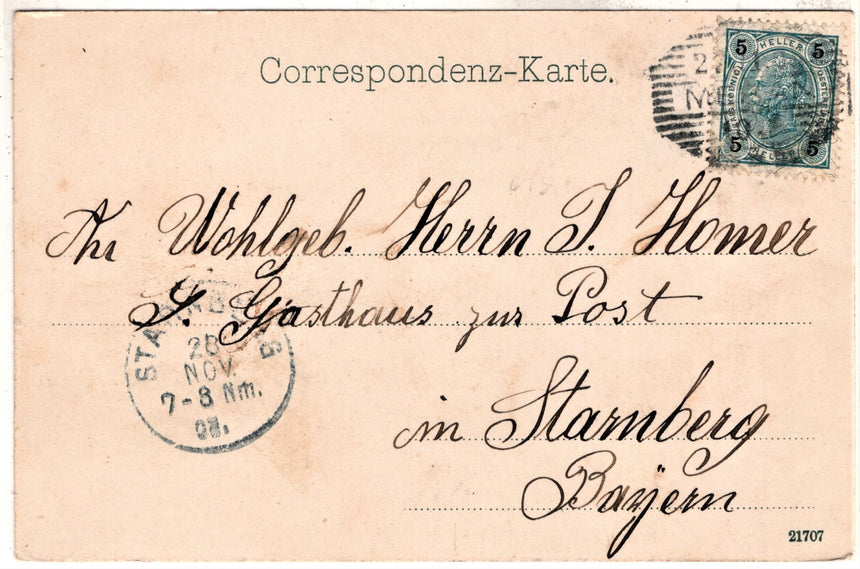 Correspondenz-Karte.
5 HELLER 5
5 5
2
ME
An Wohlgeb. Herrn J. Homer
z. Gasthaus zur Post
in Starnberg
Bayern
STARNBERG
28
NOV.
7-8 Nm.
02.
21707